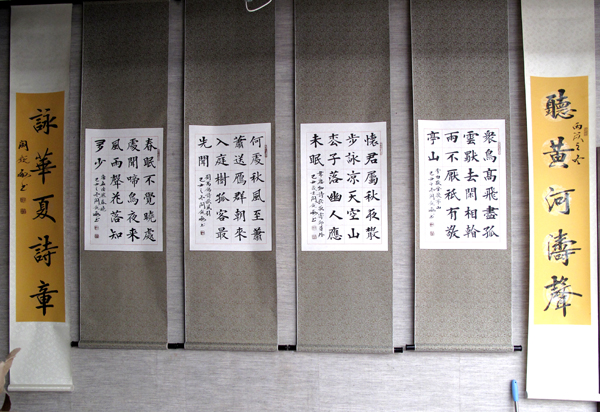 聽黃河濤聲
眾鳥高飛盡孤
雲獨去閑相看
兩不厭秖有敬
亭山
懷君屬秋夜散
步詠涼天空山
松子落幽人應
未眠
何處秋風至蕭
蕭送雁群朝來
入庭樹孤客最
先聞
春眠不覺曉處
處聞啼鳥夜來
風雨聲花落知
多少
詠華夏詩章